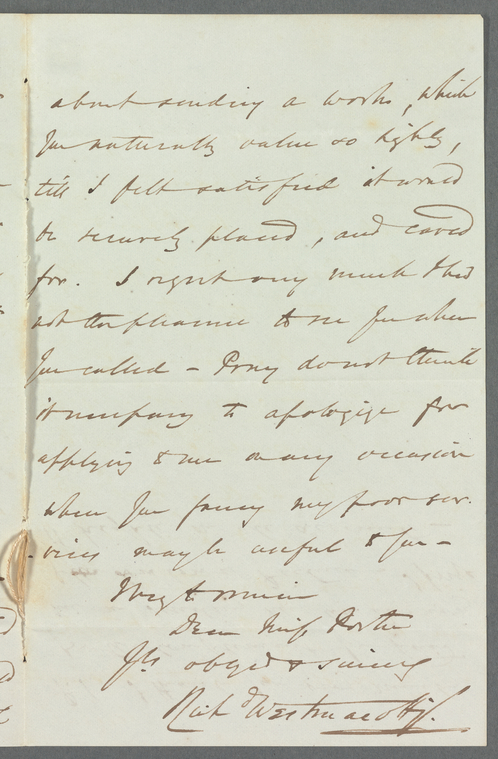 about sending a work, which
you naturally value so highly,
till I felt satisfied it would
be securely placed, and cared
for. I regret very much I had
not the pleasure to see you when
you called – Pray do not think
it necessary to apologize for
applying to me on any occasion
when you fancy my poor ser-
vices may be useful to you –
I beg to remain
Dear Miss Porter
Yrs obliged & sincerely
Richd Westmacott Jr.